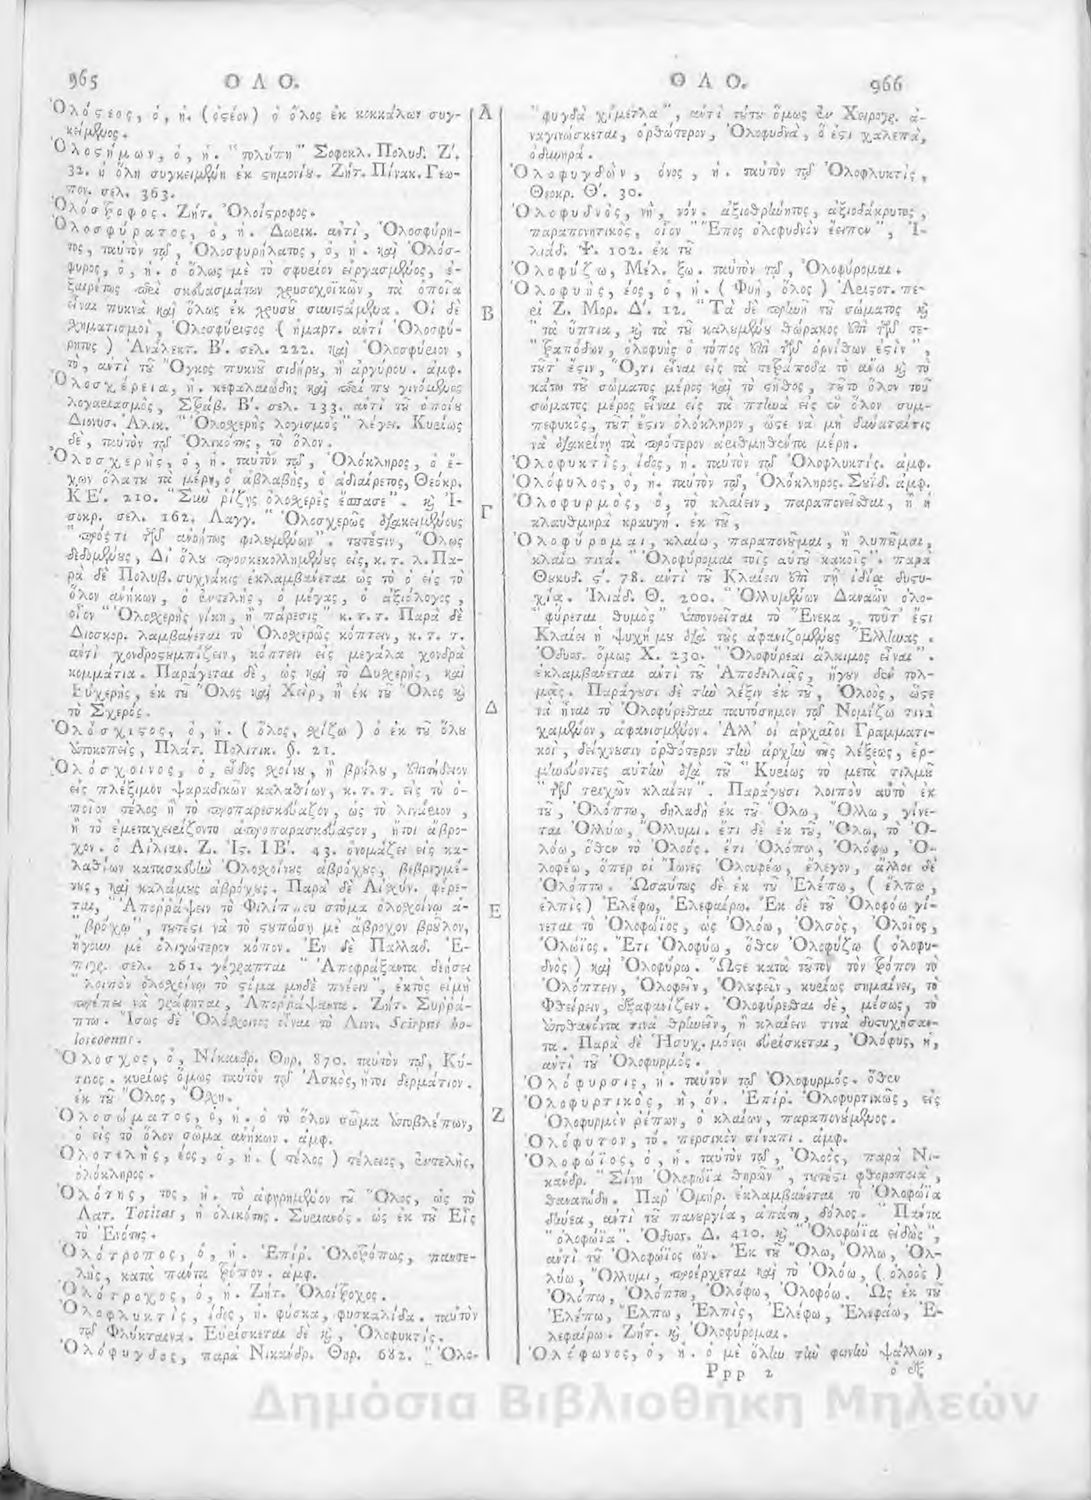 965 ΟΛΟ.
Ὀλόστεος, ὁ, ἡ. (ὀστέον) ὁ ὅλος ἐκ κοκκάλων συγ-
κείμενος.
Ὁλοστήμων, ὁ, ἡ. "πολύπη" Σοφοκλ. Πολυδ. Ζ΄.
32. ἡ ὅλη συγκειμένη ἐκ στημονίου. Ζήτ. Πίνακ. Γεω-
πον. σελ. 363.
Ὁλόστροφος. Ζήτ. Ὁλοίστροφος.
Ὁλοσφύρατος, ὁ, ἡ. Δωρικ. αντὶ, Ὁλοσφύρη-
τος, ταὐτὸν τῷ, Ὁλοσφυρήλατος, ὁ, ἡ. καὶ Ὁλόσ-
φυρος, ὁ, ἡ. ὁ ὅλως μὲ τὸ σφυρίον εἰργασμένος, ἐ-
ξαιρέτως περὶ σκευασμάτων χρυσοχοϊκῶν, τὰ ὁποῖα
εἶναι πυκνὰ καὶ ὅλως ἐκ χρυσοῦ συνιστάμενα. Οἱ δὲ
σχηματισμοὶ, Ὁλοσφύριστος (ἡμαρτ. αντὶ Ὁλοσφύ-
ρητος) Ἀνάλεκτ. Β΄. σελ. 222. καὶ Ὁλοσφύριον,
τὸ, αντὶ τοῦ Ὄγκος πυκνοῦ σιδήρου, ἢ ἀργύρου. ἀμφ.
Ὁλοσχέρεια, ἡ. κεφαλαιώδης καὶ περί που γινόμενος
λογαριασμὸς, Στράβ. Β΄. σελ. 133. αντὶ τοῦ ὁποίου
Διονυσ. Ἁλικ. "Ὁλοσχερὴς λογισμὸς" λέγει. Κυρίως
δὲ, ταὐτὸν τῷ Ὁλικότης, τὸ ὅλον.
Ὁλοσχερὴς, ὁ, ἡ. ταὐτὸν τῷ, Ὁλόκληρος, ὁ ἔ-
χων ὅλα τὰ μέρη, ὁ ἀβλαβὴς, ὁ ἀδιαίρετος, Θεόκρ.
ΚΕ΄. 210. "Σὺν ῥίζῃς ὁλοσχερὲς ἔσπασε". καὶ Ἰ-
σοκρ. σελ. 162. Λαγγ. "Ὁλοσχερῶς διακειμένους
"πρός τι τῶν ἀνοήτως φιλουμένων". τουτέστιν, Ὅλως
δεδομένους, Δι' ὅλου προσκεκολλημένους εἰς, κ. τ. λ. Πα-
ρὰ δὲ Πολυβ. συχνάκις ἐκλαμβάνεται ὡς τὸ ὁ εἰς τὸ
ὅλον ἀνήκων, ὁ ἐντελὴς, ὁ μέγας, ὁ ἀξιόλογος,
οἷον "Ὁλοσχερὴς νίκη, ἢ πάρεσις" κ. τ. τ. Παρὰ δὲ
Διοσκορ. λαμβάνεται τὸ Ὁλοσχερῶς κόπτειν, κ. τ. τ.
αντὶ χονδροστουμπίζειν, κόπτειν εἰς μεγάλα χονδρὰ
κομμάτια. Παράγεται δὲ, ὡς καὶ τὸ Δυσχερὴς, καὶ
Εὐχερὴς, ἐκ τοῦ Ὅλος καὶ Χεὶρ, ἢ ἐκ τοῦ Ὅλος καὶ
τὸ Σχερός.
Ὁλόσχιστος, ὁ, ἡ. (ὅλος, σχίζω) ὁ ἐκ τοῦ ὅλου
ἀποκοπεὶς, Πλάτ. Πολιτικ. §. 21.
Ὁλόσχοινος, ὁ, εἶδος σχοίνου, ἢ βρύλου, ἐπιτήδειον
εἰς πλέξιμον ψαραδικῶν καλαθίων, κ. τ. τ. εἰς τὸ ὁ-
ποῖον τέλος ἢ τὸ προπαρεσκεύαζον, ὡς τὸ λινάριον,
ἢ τὸ ἐμεταχειρίζοντο ἀπροπαρασκεύαστον, ἤτοι ἄβρο-
χον. ὁ Αἰλιαν. Ζ. Ἱς. ΙΒ΄. 43. ὀνομάζει εἰς κα-
λαθίων κατασκευὴν Ὁλοσχοίνους ἀβρόχους, βεβρεγμέ-
νους, καὶ καλάμους ἀβρόχους. Παρὰ δὲ Αἰσχύν. φέρε-
ται, "Ἀποῤῥάψειν τὸ Φιλίππου στόμα ὁλοσχοίνῳ ἀ-
"βρόχῳ", τουτέστι νὰ τὸ στουπώσῃ μὲ ἄβροχον βρύλον,
ἤγουν μὲ ὀλιγώτερον κόπον. Ἐν δὲ Παλλαδ. Ἐ-
πιγρ. σελ. 261. γέγραπται "Ἀποφράξαντα δεήσει
"λοιπὸν ὁλοσχοίνῳ τὸ στόμα μηδὲ πνέειν", ἐκτὸς εἰμὴ
πρέπει νὰ γράφηται, Ἀποῤῥάψαντα. Ζήτ. Συῤῥά-
πτω. Ἴσως δὲ Ὁλόσχοινος εἶναι τὸ Λινν. Scirpus ho-
loscoenus.
Ὀλοσχος, ὁ, Νίκανδρ. Θηρ. 870. ταὐτὸν τῷ, Κύ-
τινος. κυρίως ὅμως ταὐτὸν τῷ Ἀσκὸς, ἤτοι δερμάτιον.
ἐκ τοῦ Ὅλος, Ὄχη.
Ὁλοσώματος, ὁ, ἡ. ὁ τὸ ὅλον σῶμα ἀποβλέπων,
ὁ εἰς τὸ ὅλον σῶμα ἀνήκων. ἀμφ.
Ὁλοτελὴς, έος, ὁ, ἡ. (τέλος) τέλειος, ἐντελὴς,
ὁλόκληρος.
Ὁλότης, τος, ἡ. τὸ ἀφῃρημένον τοῦ Ὅλος, ὡς τὸ
Λατ. Totitas, ἡ ὁλικότης. Συριανὸς. ὡς ἐκ τοῦ Εἷς
τὸ Ἑνότης.
Ὁλότροπος, ὁ, ἡ. Ἐπίρ. Ὁλοτρόπως, παντε-
λῶς, κατὰ πάντα τρόπον. ἀμφ.
Ὁλότροχος, ὁ, ἡ. Ζήτ. Ὁλοίτροχος.
Ὁλοφλυκτὶς, ίδος, ἡ. φύσκα, φυσκαλίδα. ταὐτὸν
τῷ Φλύκταινα. Εὑρίσκεται δὲ καὶ, Ὁλοφυκτίς.
Ὀλόφυγδος, παρὰ Νικάνδρ. Θηρ. 682. "Ὀλο-
Α
Β
Γ
Δ
Ε
Ζ
ΟΛΟ. 966
"φυγδὰ χίμετλα", αντὶ τούτου ὅμως ἐν Χειρογρ. ἀ-
ναγινώσκεται, ὀρθώτερον, Ὀλοφυδνὰ, ὅ ἐστι χαλεπὰ,
ὀδυνηρά.
Ὀλοφυγδὼν, όνος, ἡ. ταὐτὸν τῷ Ὁλοφλυκτὶς,
Θεοκρ. Θ΄. 30.
Ὀλοφυδνὸς, νὴ, νόν. ἀξιοθρήνητος, ἀξιοδάκρυτος,
παραπονητικὸς, οἷον "Ἔπος ὀλοφυδνὸν ἔειπον", Ἰ-
λιάδ. Ψ. 102. ἐκ τοῦ
Ὀλοφύζω, Μέλ. ξω. ταὐτὸν τῷ, Ὀλοφύρομαι.
Ὁλοφυὴς, έος, ὁ, ἡ. (Φυὴ, ὅλος) Ἀριστοτ. πε-
ρὶ Ζ. Μορ. Δ΄. 12. "Τὰ δὲ πρανῆ τοῦ σώματος καὶ
"τὰ ὕπτια, καὶ τὰ τοῦ καλουμένου θώρακος ἐπὶ τῶν τε-
"τραπόδων, ὁλοφυὴς ὁ τόπος ἐπὶ τῶν ὀρνίθων ἐστὶν",
τοῦτ' ἔστιν, Ὅ,τι εἶναι εἰς τὰ τετράποδα τὸ ἄνω καὶ τὸ
κάτω τοῦ σώματος μέρος καὶ τὸ στῆθος, τοῦτο ὅλον τοῦ
σώματος μέρος εἶναι εἰς τὰ πτηνὰ εἰς ἓν ὅλον συμ-
πεφυκὸς, τοῦτ' ἔστιν ὁλόκληρον, ὥστε νὰ μὴ δύναταί τις
νὰ διακρίνῃ τὰ πρότερον ἀριθμηθέντα μέρη.
Ὁλοφυκτὶς, ίδος, ἡ. ταὐτὸν τῷ Ὁλοφλυκτίς. ἀμφ.
Ὁλόφυλος, ὁ, ἡ. ταὐτὸν τῷ, Ὁλόκληρος. Σουΐδ. ἀμφ.
Ὀλοφυρμὸς, ὁ, τὸ κλαίειν, παραπονεῖσθαι, ἢ ἡ
κλαυθμηρὰ κραυγή. ἐκ τοῦ,
Ὀλοφύρομαι, κλαίω, παραπονοῦμαι, ἢ λυποῦμαι,
κλαίω τινά. "Ὀλοφύρομαι τοῖς αὐτοῦ κακοῖς". παρὰ
Θουκυδ. ς΄. 78. αντὶ τοῦ Κλαίειν ἐπὶ τῇ ἰδίᾳ δυστυ-
χίᾳ. Ἰλιάδ. Θ. 200. "Ὀλλυμένων Δαναῶν ὀλο-
"φύρεται θυμὸς" ὑπονοεῖται τὸ Ἕνεκα, τοῦτ' ἔστι
Κλαίει ἡ ψυχή μου διὰ τοὺς ἀφανιζομένους Ἕλληνας.
Ὀδυσσ. ὅμως Χ. 230. "Ὀλοφύρεαι ἄλκιμος εἶναι".
ἐκλαμβάνεται αντὶ τοῦ Ἀποδειλιᾷς, ἤγουν δὲν τολ-
μᾷς. Παράγουσι δὲ τὴν λέξιν ἐκ τοῦ, Ὀλοὸς, ὥστε
νὰ ἦναι τὸ Ὀλοφύρεσθαι ταυτόσημον τῷ Νομίζω τινὰ
χαμένον, ἀφανισμένον. Ἀλλ' οἱ ἀρχαῖοι Γραμματι-
κοὶ, δείχνουσιν ὀρθότερον τὴν ἀρχὴν τῆς λέξεως, ἑρ-
μηνεύοντες αὐτὴν διὰ τοῦ "Κυρίως τὸ μετὰ τιλμοῦ
"τῶν τριχῶν κλαίειν". Παράγουσι λοιπὸν αὐτὸ ἐκ
τοῦ, Ὀλόπτω, δηλαδὴ ἐκ τοῦ Ὄλω, Ὄλλω, γίνε-
ται Ὀλλύω, Ὄλλυμι. ἔτι δὲ ἐκ τοῦ, Ὄλω, τὸ Ὀ-
λόω, ὅθεν τὸ Ὀλοός. ἔτι Ὀλόπω, Ὀλόφω, Ὀ-
λοφέω, ὅπερ οἱ Ἴωνες Ὀλουφέω, ἔλεγον, ἄλλοι δὲ
Ὀλόπτω. Ὡσαύτως δὲ ἐκ τοῦ Ἐλέπω, (ἔλπω,
ἐλπὶς) Ἐλέφω, Ἐλεφαίρω. Ἐκ δὲ τοῦ Ὀλοφόω γί-
νεται τὸ Ὀλοφώϊος, ὡς Ὀλόω, Ὀλοὸς, Ὀλοῖος,
Ὀλώϊος. Ἔτι Ὀλοφύω, ὅθεν Ὀλοφύζω (ὀλοφυ-
δνὸς) καὶ Ὀλοφύρω. Ὥστε κατὰ τοῦτον τὸν τρόπον τὸ
Ὀλόπτειν, Ὀλοφεῖν, Ὀλυφεῖν, κυρίως σημαίνει, τὸ
Φθείρειν, ἐξαφανίζειν. Ὀλοφύρεσθαι δὲ, μέσως, τὸ
ἀποθανόντα τινὰ θρηνεῖν, ἢ κλαίειν τινὰ δυστυχήσαν-
τα. Παρὰ δὲ Ἡσυχ. μόνῳ εὑρίσκεται, Ὀλόφυς, ἡ,
αντὶ τοῦ Ὀλοφυρμός.
Ὀλόφυρσις, ἡ. ταὐτὸν τῷ Ὀλοφυρμός. ὅθεν
Ὀλοφυρτικὸς, ὴ, όν. Ἐπίρ. Ὀλοφυρτικῶς, εἰς
Ὀλοφυρμὸν ῥέπων, ὁ κλαίων, παραπονούμενος.
Ὁλόφυτον, τό. περσικὸν σίναπι. ἀμφ.
Ὀλοφώϊος, ὁ, ἡ. ταὐτὸν τῷ, Ὀλοὸς, παρὰ Νι-
κάνδρ. "Σίνη Ὀλοφώϊα θηρῶν", τουτέστι φθοροποιὰ,
θανατώδη. Παρ' Ὁμήρ. ἐκλαμβάνεται τὸ Ὀλοφώϊα
δήνεα, αντὶ τοῦ πανουργία, ἀπάτη, δόλος. "Πάντα
"ὀλοφώϊα". Ὀδυσ. Δ. 410. καὶ "Ὀλοφώϊα εἰδὼς",
αντὶ τοῦ Ὀλοφώϊος ὤν. Ἐκ τοῦ Ὄλω, Ὄλλω, Ὀλ-
λύω, Ὄλλυμι, προέρχεται καὶ τὸ Ὀλόω, (ὀλοὸς)
Ὀλόπω, Ὀλόπτω, Ὀλόφω, Ὀλοφόω. Ὡς ἐκ τοῦ
Ἐλέπω, Ἔλπω, Ἐλπὶς, Ἐλέφω, Ἐλεφάω, Ἐ-
λεφαίρω. Ζήτ. καὶ Ὀλοφύρομαι.
Ὁλόφωνος, ὁ, ἡ. ὁ μὲ ὅλην τὴν φωνὴν ψάλλων,
Ppp 2 ὁ ἐξ
Δημόσια Βιβλιοθήκη Μηλεών